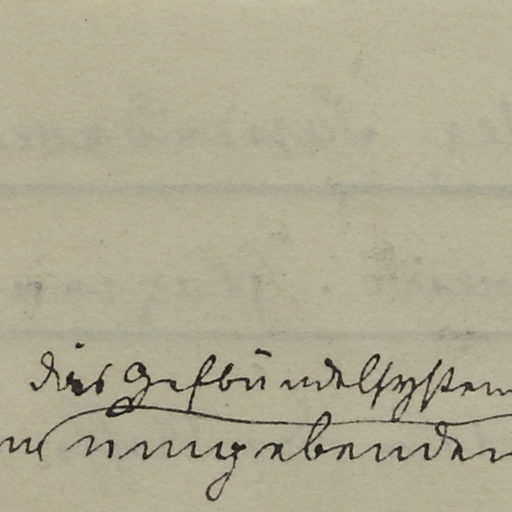 das Gefbündelsystem
umgebenden